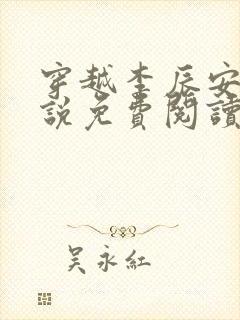 穿越李辰安
說免費閱讀
吳永紅